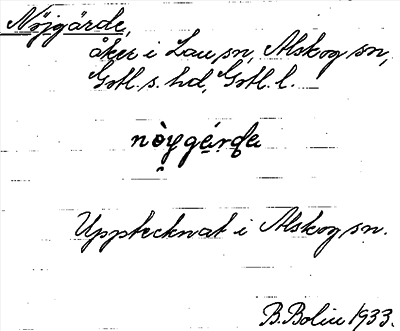 Nöjgärde,
åker i Lau sn, Alskog sn,
Gotl. s. hd, Gotl. l.
nòygárde
Upptecknat i Alskog sn.
B. Bolin 1933.